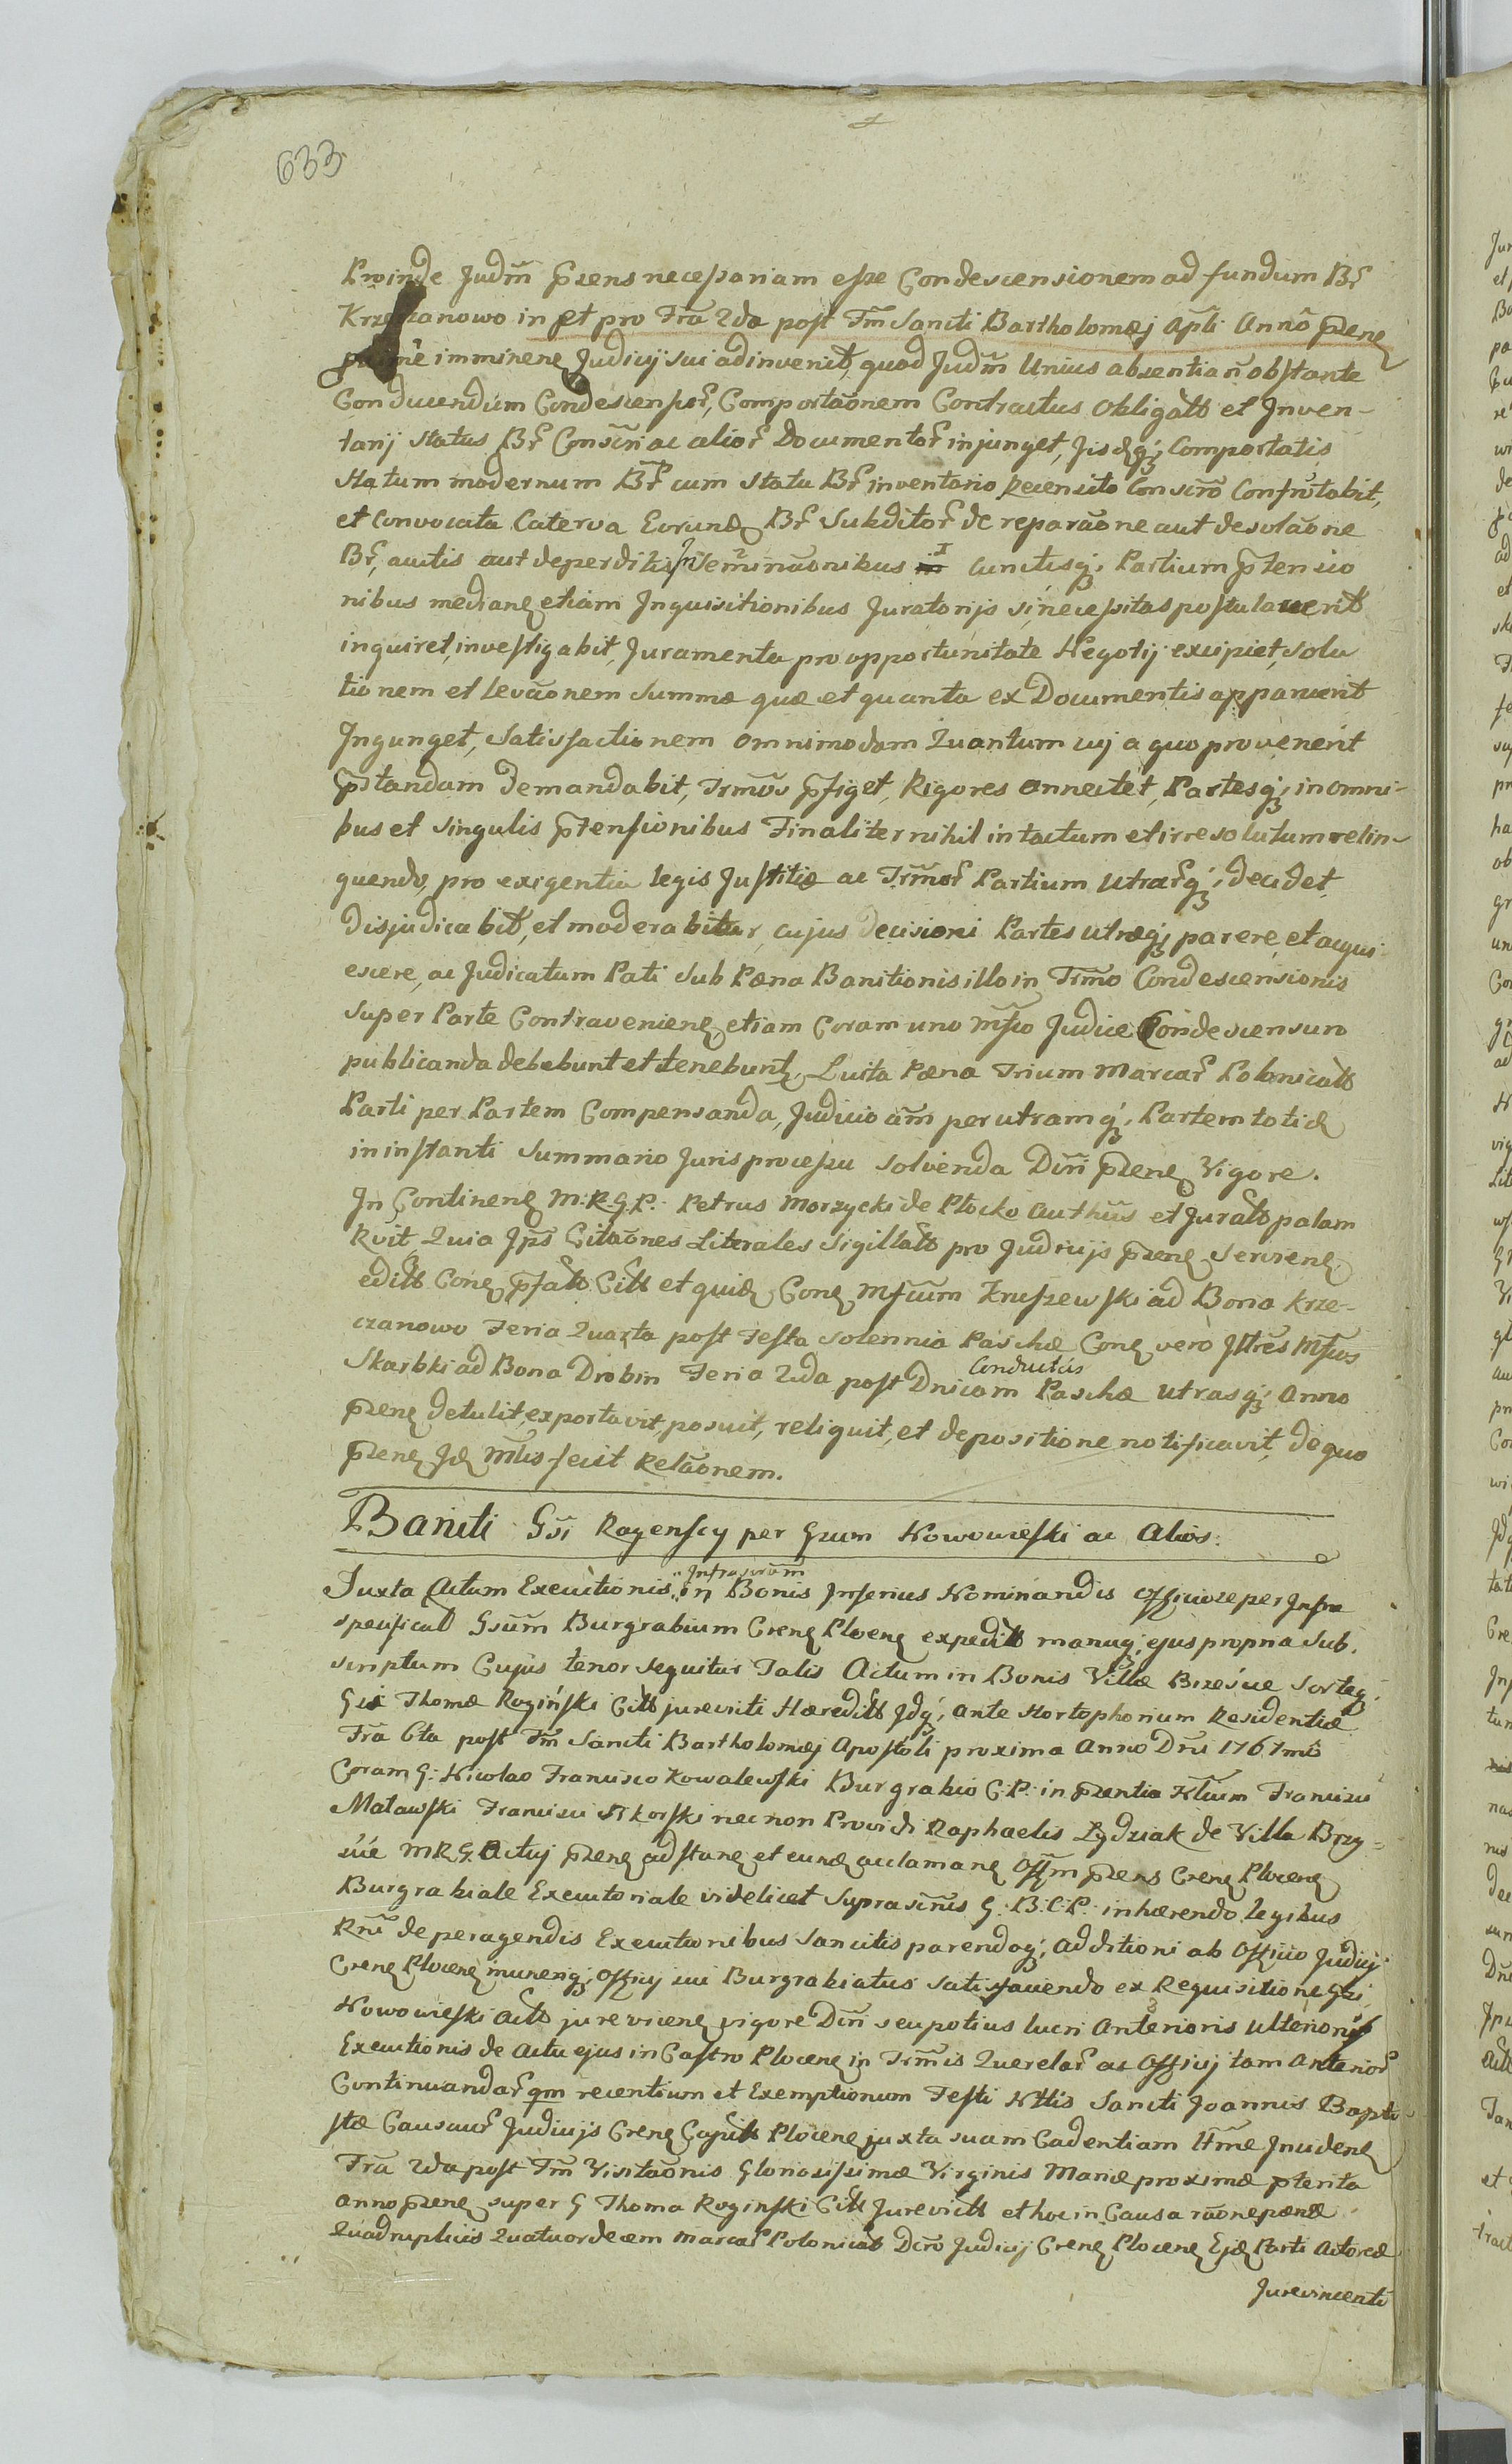 633
Proinde Judm̃ p̃zens necessariam esse Condescensionem ad fundum Br̃
Krzeczanowo in et pro Fr̃a 2da post Fm̃ Sancti Bartholomæj Apl̃i Annô p̃zenę
imminenę Judicij sui adinvenit, quod Judm̃ Unius absentia ñ obstante
Conducendum Condescensor̃, Comportãonem Contractus Obligãtt et Inven-
tarij status Br̃ Conscñ ac alior̃ Documentor̃ injunget, Jisdęq; Comportatis
Statum modernum Br̃ cum Statu Br̃ inventario recensito Conscr̃o Confrõtabit,
et Convocata Caterva Eorundę Br̃ Subditor̃ de reparãone aut desolãone
Br̃, auctis aut deperditis, Seminãonibus cunctisq; Partium p̃tensio
nibus medianę etiam Inquisitionibus Juratorijs si necessitas postulaverit
inquiret, investigabit, Juramenta pro opportunitate Negotij excipiet, solu
tionem et levãonem Summæ quæ et quanta ex Documentis apparuerit
Ingunget, Satisfactionem omnimodam Quantum cuj a quo provenerit
p̃standam demandabit, Trm̃os p̃figet, Rigores annectet, Partesq; in omni-
bus et singulis p̃tensionibus Finaliter nihil intactum et irresolutum relin-
quendo, pro exigentia legis Justitiæ ac Trm̃or̃ Partium utrar̃q; decidet
disjudicabit, et moderabitur, cujus decisioni Partes utræq; parere, et acqui-
escere, ac Judicatum Pati Sub Pæna Banitionis illo in Trm̃o Condescensionis
super Parte Contravenienę, etiam Coram uno Mfĩco Judice Condescensuro
publicanda debebunt et tenebuntę, Luita Pæna Trium Marcar̃ Polonicãtt
Parti per Partem Compensanda, Judicio am̃ per utramq; Partem totidę
in instanti Summario Juris processu solvenda Dcr̃i p̃zenę Vigore.
In Continenę M:R:G:P: Petrus Morzycki de Płocko Authũs et Jurãtt palam
Rvit Quia Ips̃ Citãones Literales Sigillãtt pro Judicijs p̃zenę Servienę
edĩtt Conę p̃fãtt Cĩtt et quidę Conę Mfĩcum Kruszewski ad Bona Krze-
czanowo Feria Quarta post Festa Solennia Paschæ Conę vero Illtres Mfĩcos
Skarbki ad Bona Drobin Feria 2da post Dnicam Conductus Paschæ utrasq; Anno
p̃zenę detulit, exportavit, posuit, reliquit, et depositione notificavit, de quo
p̃zenę Jdę Mlis fecit Relãonem.
Baniti Gsĩ Rogenscy per Gzum Nowowieski ac Alios:
Juxta Actum Executionis infrascrãm in Bonis Inferius Nominandis Officiose per Infra
specificat Gsũm Burgrabium Crenę Plocenę expedĩtt manuq; ejus propria Sub.
scriptum Cujus tenor Sequitur Talis Actum in Bonis Villæ Brzeście Sorteq;
Gsi Thomæ Rogiński Cĩtt jurevicti Hæredĩtt Jdq; ante Hortophorium Residentiæ
Fr̃a 6ta post Fm̃ Sancti Bartholomæj Apostoli proxima Anno Dñi 1767mô
Coram G: Nicolao Francisco Kowalewski Burgrabio C:P: in p̃zentia Nl̃ium Francisci
Maławski Francisci Sikorski nec non Providi Raphaelis Łydziak de Villa Brzy-
ście M R G. Actuj p̃zenę adstanę et eundę acclamanę Offm̃ p̃zens Crenę Plocenę
Burgrabiale Executoriale videlicet Suprascñis G: B:C:P: inhærendo legibus
Rñi de peragendis Executionibus Sancitis parendoq; additioni ab Officio Judicij
Crenę Plocenę, munerisq; Officij sui Burgrabiatus Satisfaciendo ex Requisitione Gsi
Nowowieski Actõ jurevicenę vigore Dcr̃i seu potius lucri Anterioris ulterioris
Executionis de Actu ejus in Castro Plocenę in Trm̃is Querelar̃ ac Officij tam Anterior̃
Continuandar̃ qm̃ recentium et Exemptionum Festi Ntt̃is Sancti Joannis Bapti-
stæ Causar̃ Judicijs Crenę Capĩtt Plocenę juxta suam Cadentiam ltm̃e Incidenę
Fr̃a 2da post Fm̃ Visitãonis Gloriosissimæ Virginis Mariæ proximæ p̃terita
anno p̃zenę super G Thoma Roginski Cĩtt Jurevictt et hoc in Causa rãone pænæ
Quadruplicis Quatuordecem Marcar̃ Polonicãtt Dcr̃o Judicij Crenę Plocenę Ejdę Parti Actoreæ
Jurevincenti